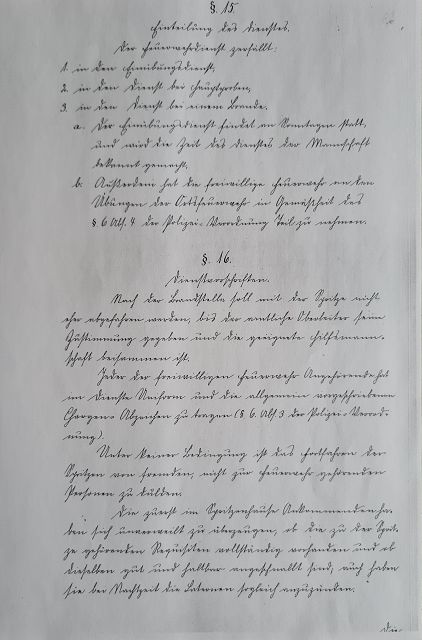 §. 15.
Einteilung des Dienstes.
Der Feuerwehrdienst zerfällt:
1. in den Einübungsdienst,
2. in den Dienst bei Hauptproben,
3. in den Dienst bei einem Brande.
a. Der Einübungsdienst findet an Sonntagen statt,
und wird die Zeit des Dienstes der Mannschaft
bekannt gemacht.
b. Außerdem hat die freiwillige Feuerwehr an den
Übungen der Ortsfeuerwehr in Gemäßheit des
§ 6 Abs. 4 der Polizei=Verordnung Teil zu nehmen.
§. 16.
Dienstvorschriften.
Nach der Brandstelle soll mit der Spritze nicht
eher abgefahren werden, bis der amtliche Oberleiter seine
Zustimmung gegeben und die geeignete Hilfsmann-
schaft beisammen ist.
Jeder der freiwilligen Feuerwehr Angehörende hat
im Dienste Uniform und die allgemein vorgeschriebenen
Chargen=Abzeichen zu tragen (§ 6. Abs. 3 der Polizei=Verord-
nung).
Unter keiner Bedingung ist das Fortfahren der
Spritzen von fremden, nicht zur Feuerwehr gehörenden
Personen zu dulden.
Die zuerst im Spritzenhause Ankommenden ha-
ben sich unverweilt zu überzeugen, ob die zu der Sprit-
ze gehörenden Requisiten vollständig vorhanden und ob
dieselben gut und haltbar angeschnallt sind; auch haben
sie bei Nachtzeit die Laternen sogleich anzuzünden.
Die